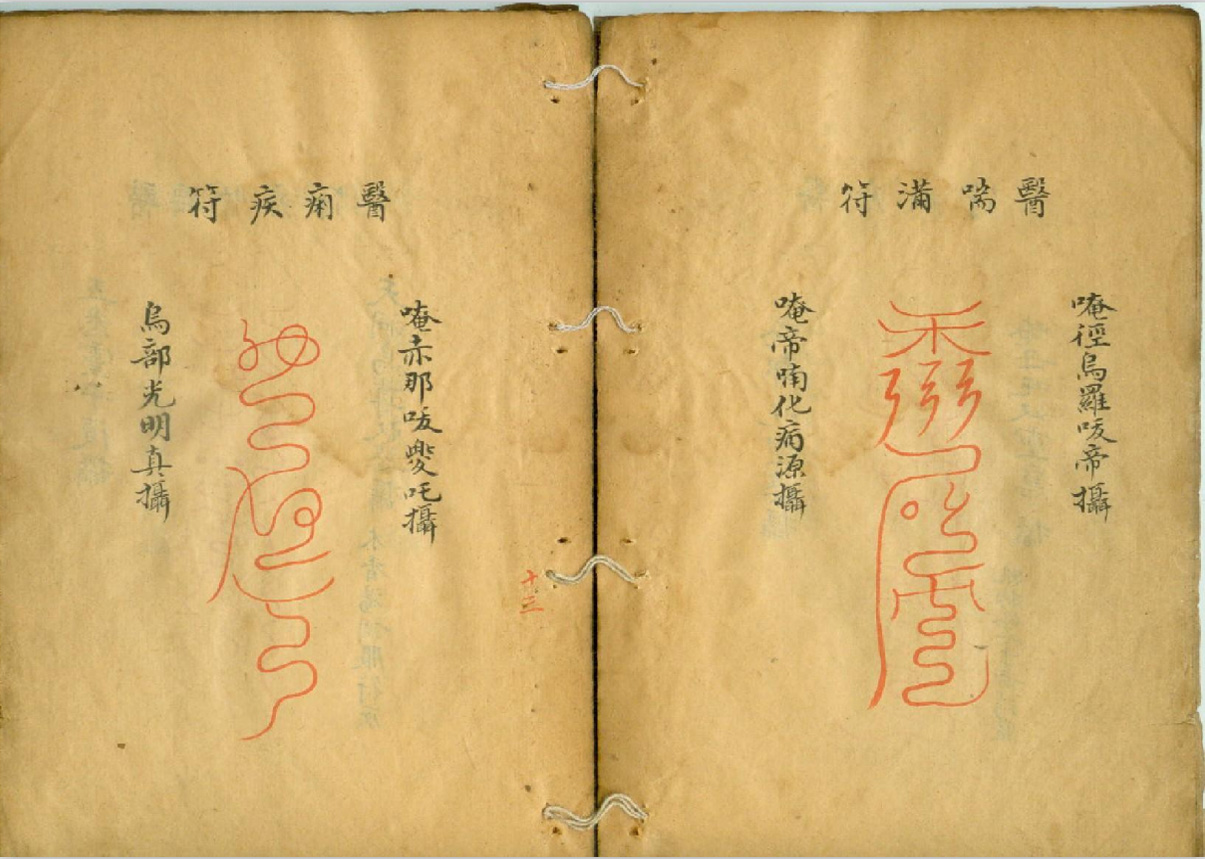 醫喘滿符
唵徑烏羅唆帝攝
唵帝喃化病源攝
醫痢疾符
唵赤那唆吒攝
烏部光明真攝
十三